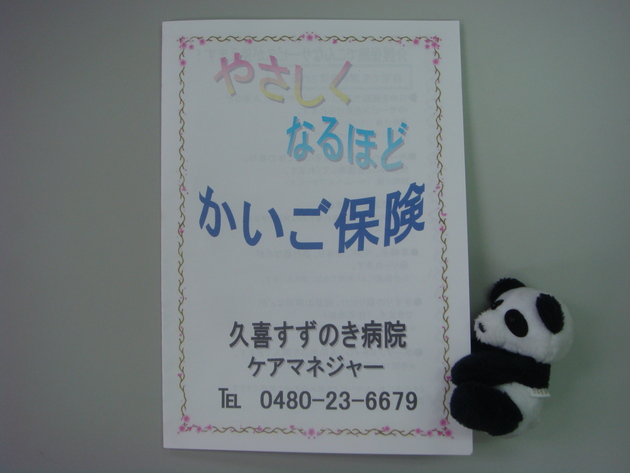 やさしく
なるほど
かいご保険
久喜すずのき病院
ケアマネジャー
℡ 0480-23-6679